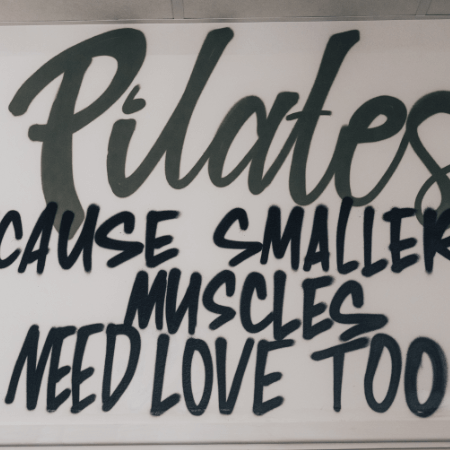 Pilates
CAUSE SMALLER
MUSCLES
NEED LOVE TOO